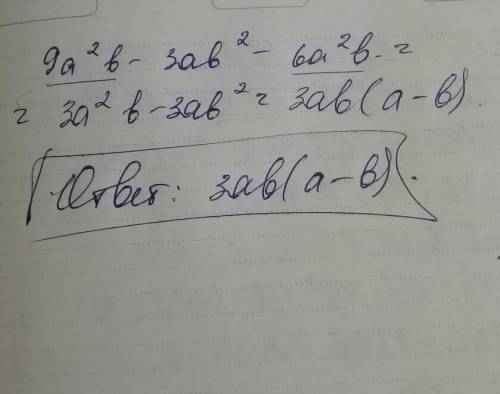 9a²b - 3ab² - 6a²b =
= 3a²b - 3ab² = 3ab(a - b).
Ответ: 3ab(a - b).